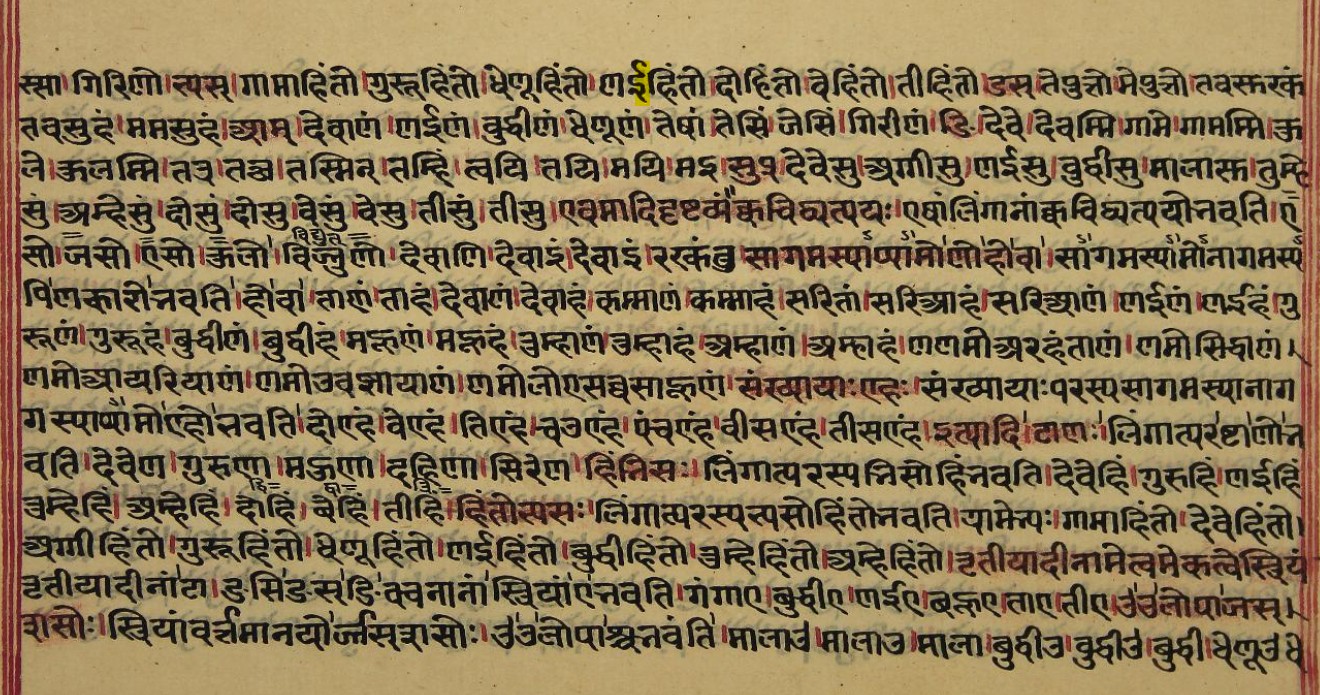 स्सा।गिरिणो।त्यस्।गामाहिंतो।गुरूहिंतो।धेणूहिंतो।णईहिंतो।दोहिंतो।वेहिंतो।तीहिंतो।ङस्।ते पुत्तो।मे पुत्तो।तवस्स
तवसुहं।ममसुहं।आम्।देवाणं।णईणं।बुद्दीणं।धेणूणं।तेषां।तेसिं।जेसिं।गिरीणं।ङि।देवे।देवम्मि।गामे।गामम्मि।
तस्मिन्।तम्हिं।त्वयि।तयि।मयि।मइ।सुप्।देवेसु।अग्गीसु।णईसु।बुद्दीसु।मालास्त।तुम्हे
सुं।अम्हेसुं।दोसुं।दोसु।वेसुं।वेसु।तीसुं।तीसु।एवमादि द्रष्टव्यं।क्वचिद्यत्ययः।एषां लिंगानां क्वचिद्यत्ययो नवति।ए
सो।जसो।एसो।विद्युत विज्जुणो।देवाणि।देवाइं।देवाइं।सागमस्याप्यामोणोहोवा।सागमस्यामोनागमस्य
पिणकारोनवति।होवा।ताणं।ताहं।देवाणं।देवाहं।कम्माणं।कम्माहं।सरितां।सरिआहं।सरिआणं।णईणं।णईहं।गु
रूणं।गुरूहं।बुद्दीणं।बुद्दीहं।मह्लणं।मह्लहं।तुम्हाणं।तुम्हाहं।अम्हाणं।अम्हाहं।णणमोअरहंताणं।णमो सिद्दाणं।
णमो आयरियाणं।णमो उवझायाणं।णमो लोए सव्वसाह्लणं।संख्यायाः एहः।संख्यायाः परस्य सागमस्यानाग
गस्याप्यामो एहोनवति।दोएहं।वेएहं।तिएहं।चउएहं।पंचएहं।वीसएहं।तीसएहं।इत्यादि।टाणः।लिंगात्परष्टाणोन
वति।देवेण।गुरुणा।दहिणा।सिरेण।हिंनिसः।लिंगात्परस्य निसो हिंनवति।देवेहिं।गुरुहिं।णईहिं
तुम्हेहिं।अम्हेहिं।दोहिं।वेहिं।तीहिं।हिंतोत्यसः।लिंगात्परस्य त्यसो हिंतोनवति।गामाहिंतो।देवेहिंतो।
अग्गीहिंतो।गुरूहिंतो।धेणूहिंतो।णईहिंतो।बुद्दीहिंतो।तुम्हेहिंतो।अम्हेहिंतो।तृतीयादीनामेत्वमेकत्वे स्त्रियं
तृतीयादीनां टा।ङसि।ङस्।ङि।वचनानां स्त्रियां एनवति।गंगाए।बुद्दीए।णईए।बह्लए।ताए।तीए।उउलोपाजस्।
शसोः।स्त्रियां वर्त्तमानयोर्ज्जस्शसोः।उउलोपाश्च नवंति।मालाउ।मालाउ।माला।बुद्दीउ।बुद्दीउ।बुद्दी।धेणूउ।धे